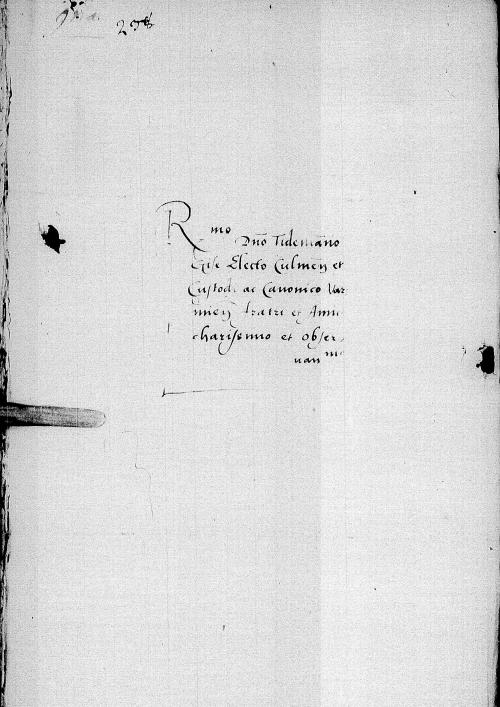 Rmo
Dno Tidemano
Gise Electo Culmen et
Custodi ac Canonico Var
mien fratri et Amic
charissimo et obser
uanmo